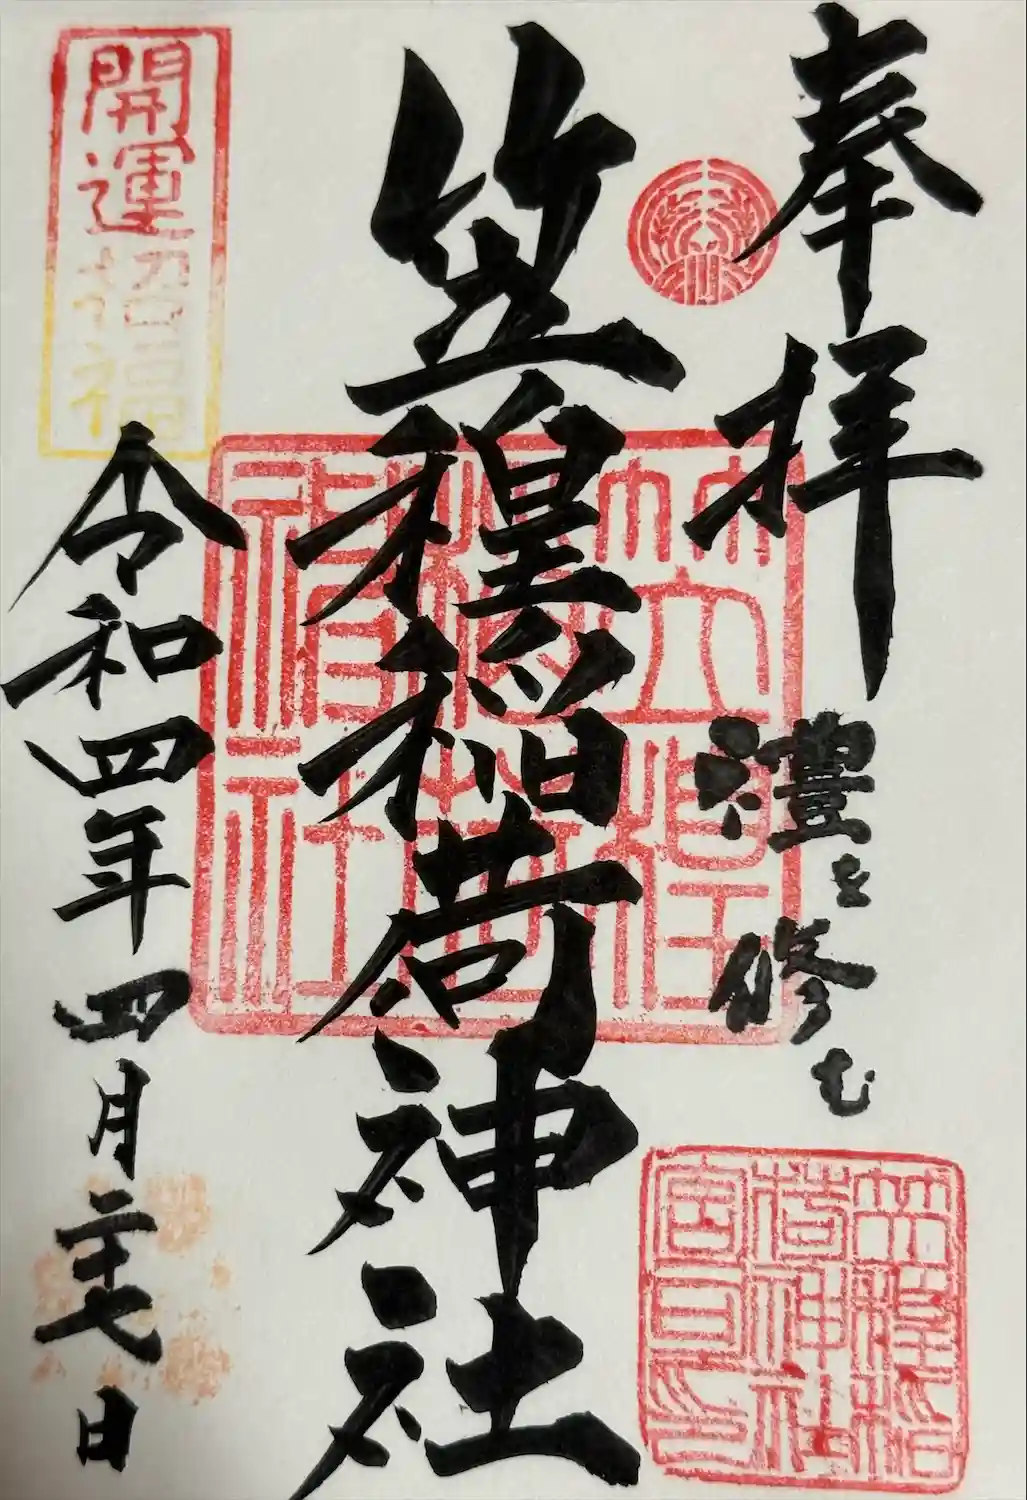 奉拝
禮を修む
笠䅣稲荷神社
令和四年四月二十七日
開運招福
笠䅣
稲荷
神社
笠䅣稲
荷神社
宮司印